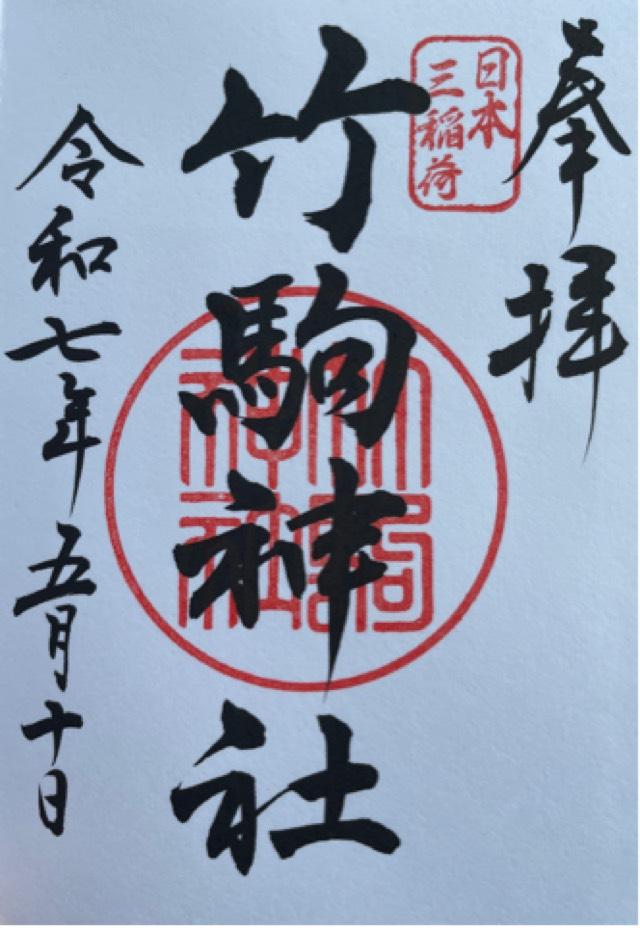 奉拝
日本
三稲荷
竹駒神社
竹駒
神社
令和七年五月十日